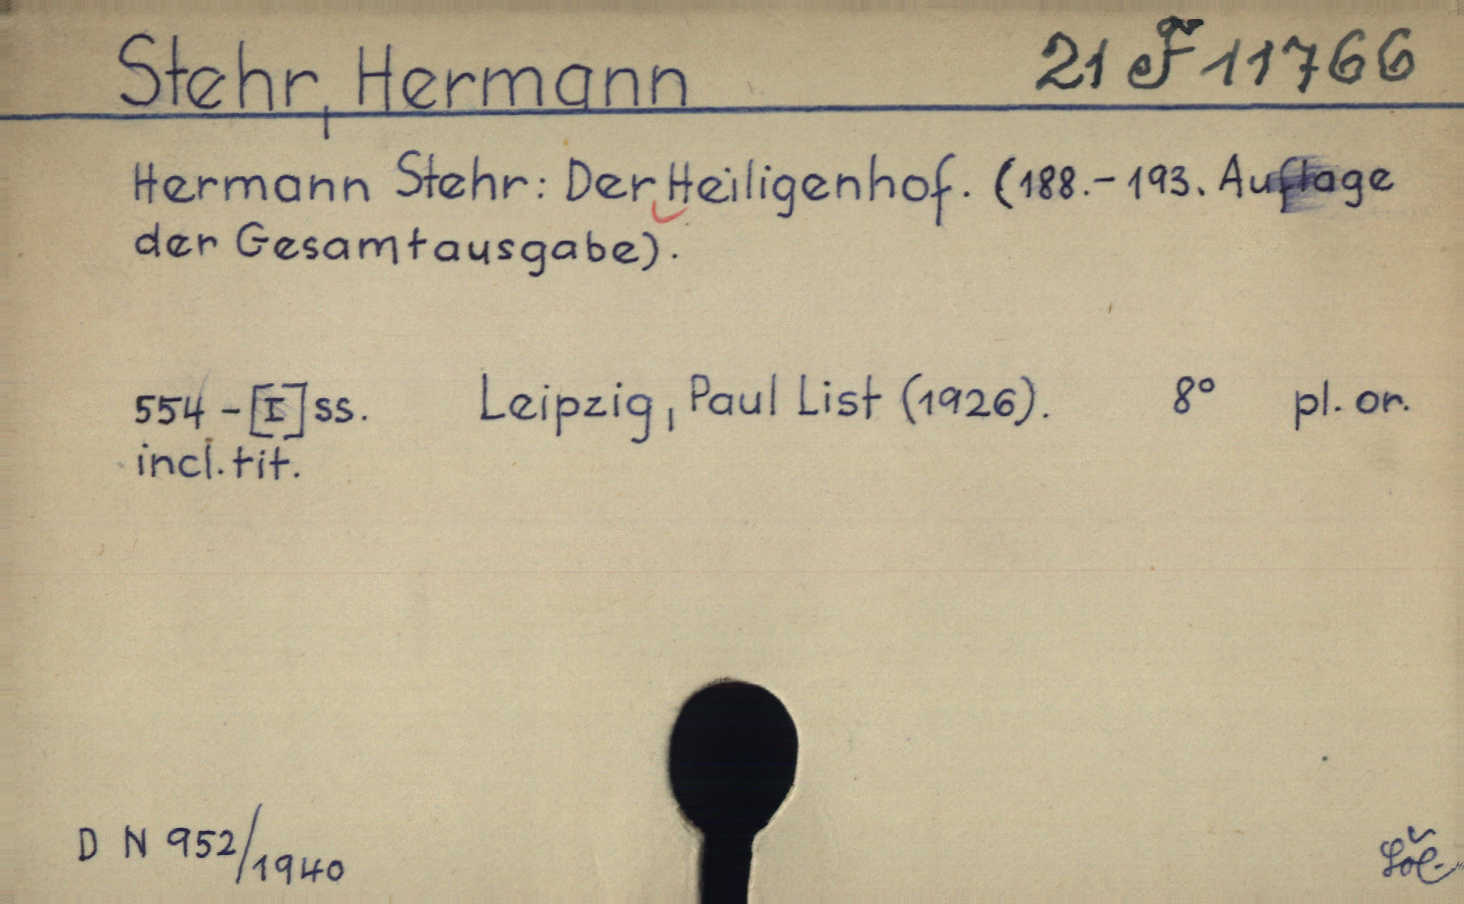 Stehr, Hermann 21 F 11766
Hermann Stehr: Der Heiligenhof. (188.-193. Auflage
der Gesamtausgabe).
554 - [I] ss. Leipzig, Paul List (1926). 8° pl. or.
incl. tit.
D N 952/1940